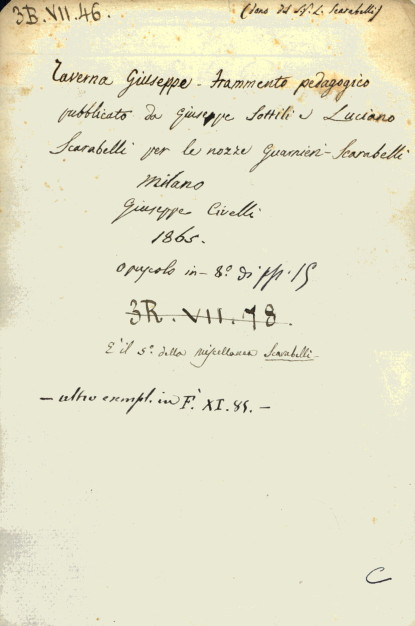 3B.VII.46.
(Dono del Sig. L. Scarabelli)
Taverna Giuseppe - Frammento pedagogico
pubblicato da Giuseppe Sottili e Luciano
Scarabelli per le nozze Guarnieri-Scarabelli
Milano
Giuseppe Civelli
1865.
opuscolo in-8.º di pp. 15
3R.VII.78.
È il 5.º della miscellanea Scarabelli
- altro exempl. in F. XI. 85. -
C